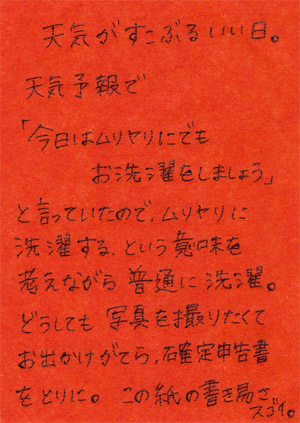 天気がすこぶるいい日。
天気予報で
「今日はムリヤリにでも
お洗濯をしましょう」
と言っていたので、ムリヤリに
洗濯する、という意味を
考えながら普通に洗濯。
どうしても写真を撮りたくて
お出かけがてら、確定申告書
をとりに。この紙の書き易さ
スゴイ。